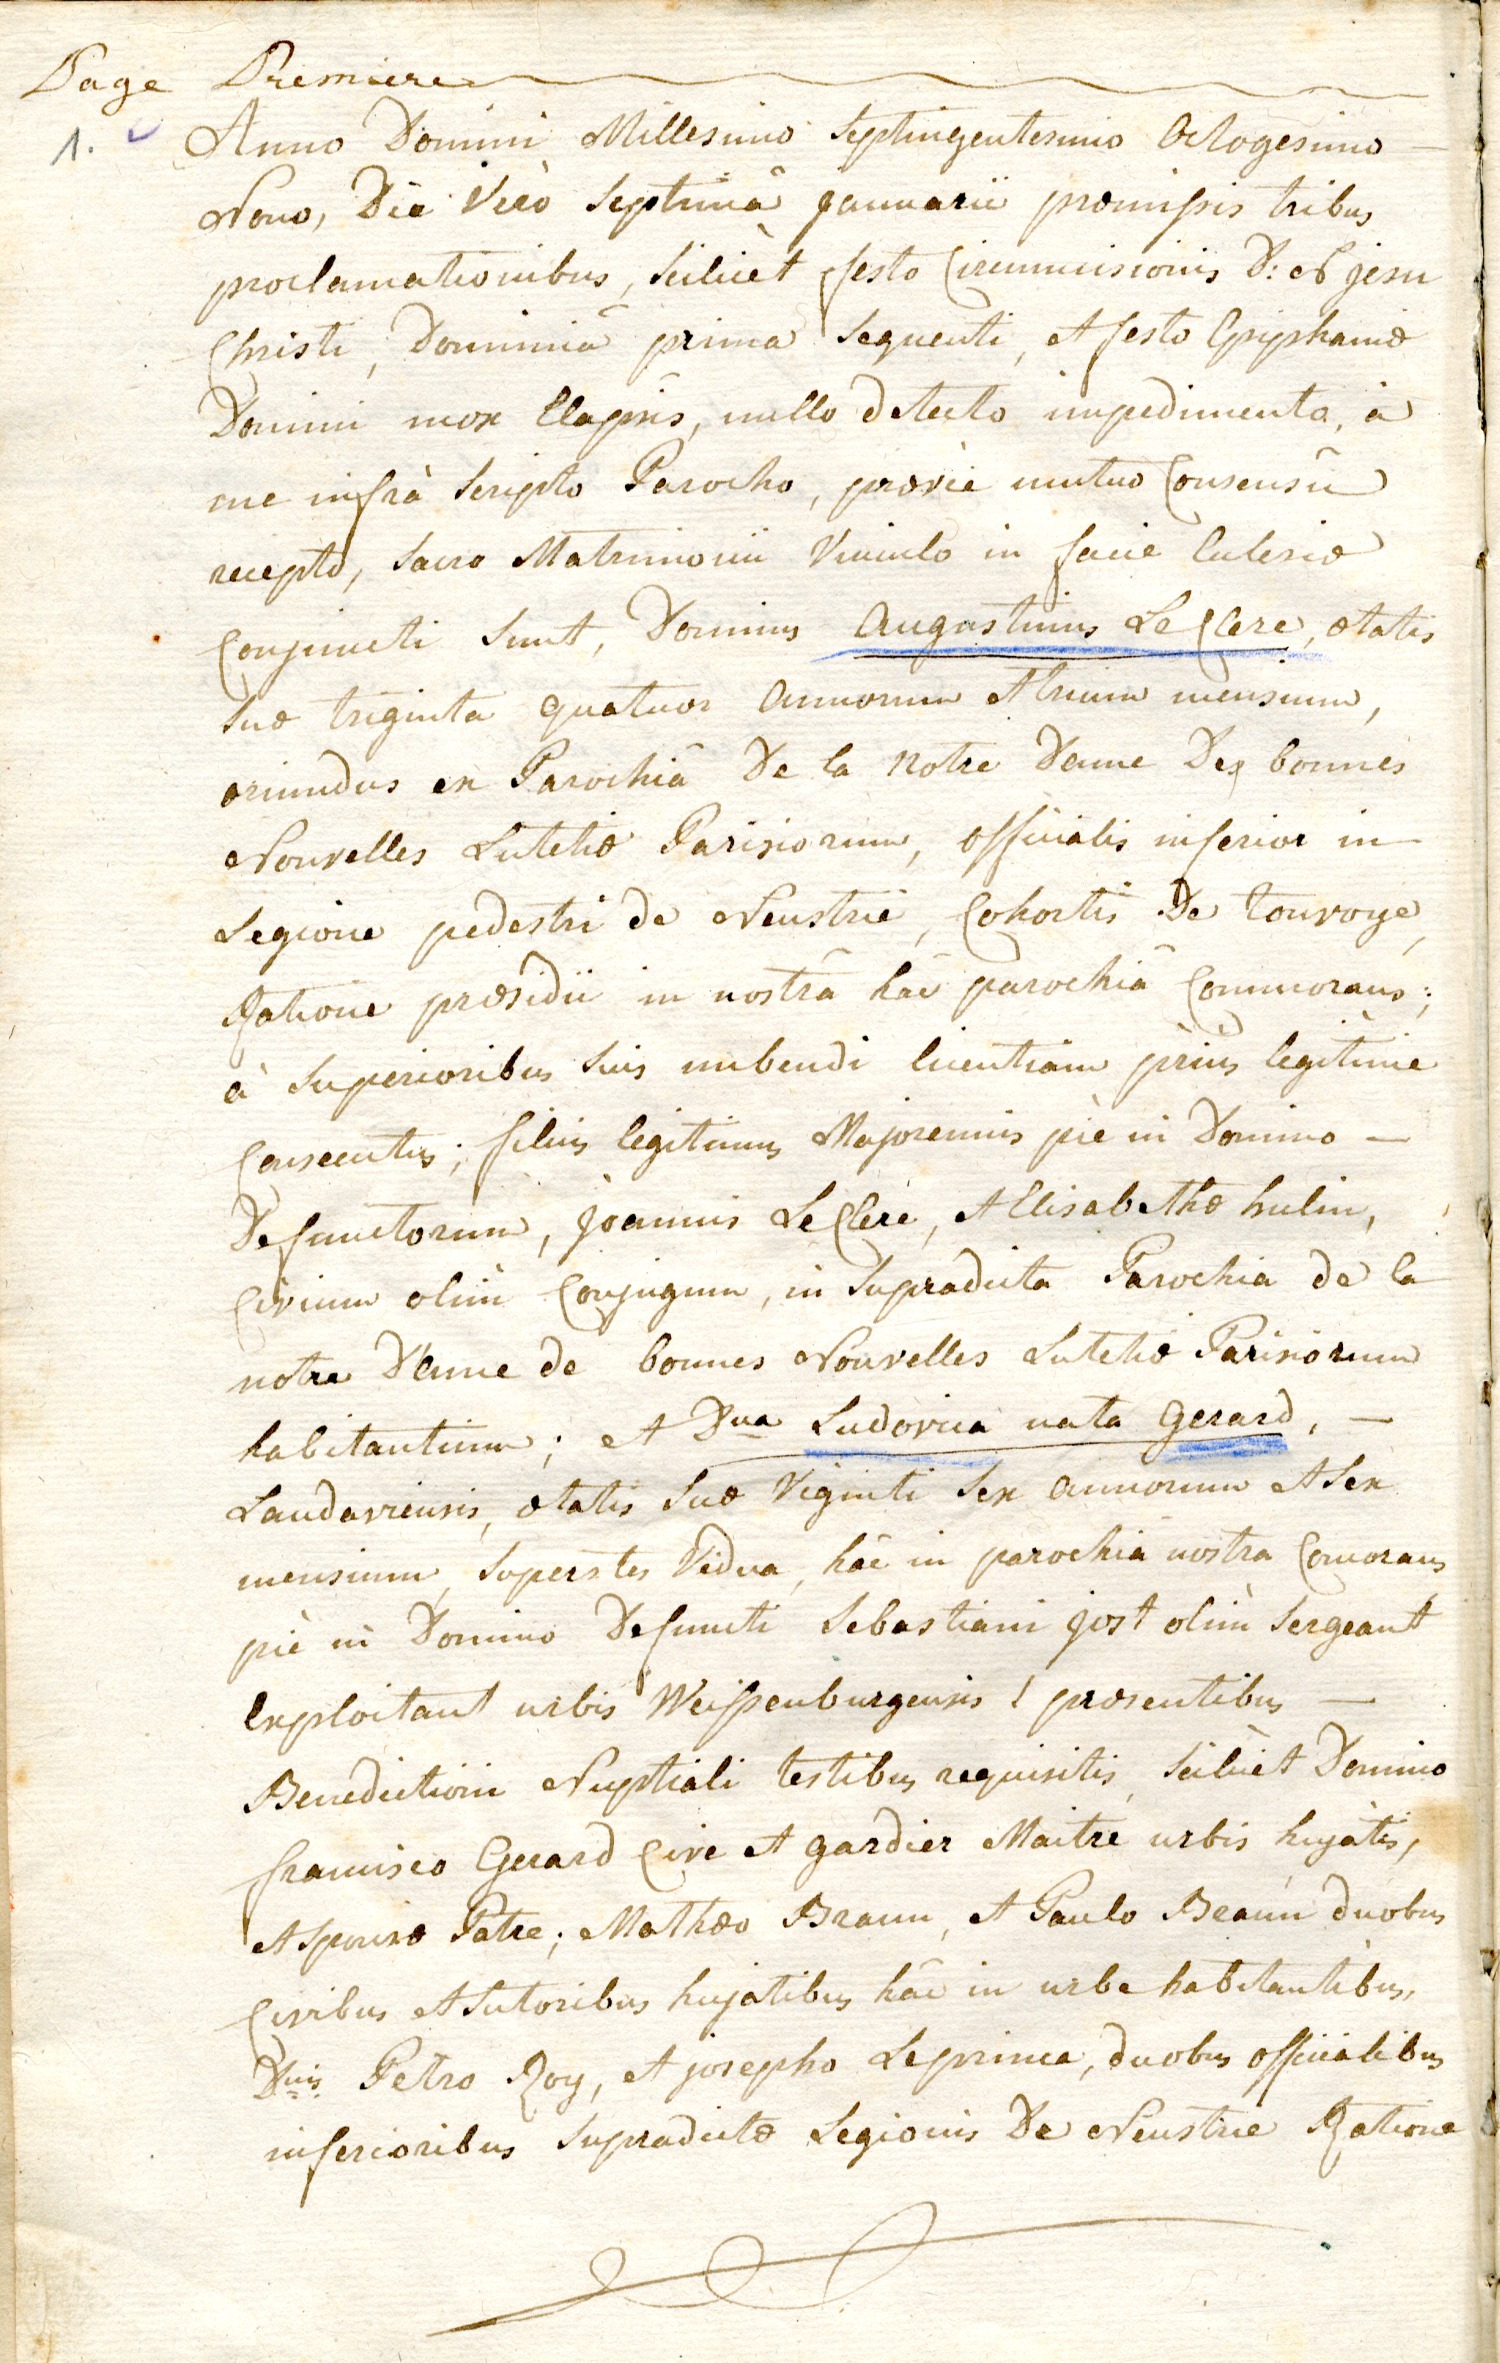 Page Premiere
1. Anno Domini Millesimo Septingentesimo Octogesimo —
Nono, Die Verò Septimâ januarii præmissis tribus
proclamationibus, scilicèt festo Circumcisionis D: N jesu
Christi, Dominicâ prima sequenti, et festo Epiphaniæ
Domini mox Elapsis, nullo detecto impedimento, à
me infrà scripto Parocho, prævie mutuo Consensû
recepto, sacro Matrimonii Vinculo in facie Eclesiæ
Conjuncti sunt, Dominus Augustinus Le Clere, ætatis
suæ triginta quatuor annorum et trium mensium,
oriundus ex Parochiâ De la Notre Dame Des bonnes
Nouvelles Lutetiæ Parisiorum, officialis inferior in —
Legione pedestri de Neustrie, Cohortis De Touroye,
Ratione præsidii in nostrâ hâc parochiâ Commorans;
à Superioribus suis nubendi licentiam priùs legitime
Consecutus; filius legitimus Majorennis piè in Domino —
Defunctorum, joannis Le Clere, et Elisabethæ hulin,
Civium olim Conjugum, in supradicta Parochia de la
notre Dame de bonnes Nouvelles Lutetiæ Parisiorum
habitantium; et Dna Ludovica nata Gerard, —
Landaviensis, ætatis suæ Viginti sex annorum et sex
mensium, superstes Vidua, hâc in parochiâ nostra Comorans
piè in Domino Defuncti Sebastiani jost olim Sergeant
Exploitant urbis Weissenburgensis! præsentibus —
Benedictioni Nuptiali testibus requisitis, scilicèt Domino
francisco Gerard Cive et gardier Maitre urbis hujatis,
et sponsæ Patre; Mathæo Braun, et Paulo Braun duobus
Civibus et sutoribus hujatibus hâc in urbe habitantibus,
Dnis Petro Roy, et josepho Leprince, duobus officialibus
inferioribus supradictæ Legionis De Neustrie Ratione